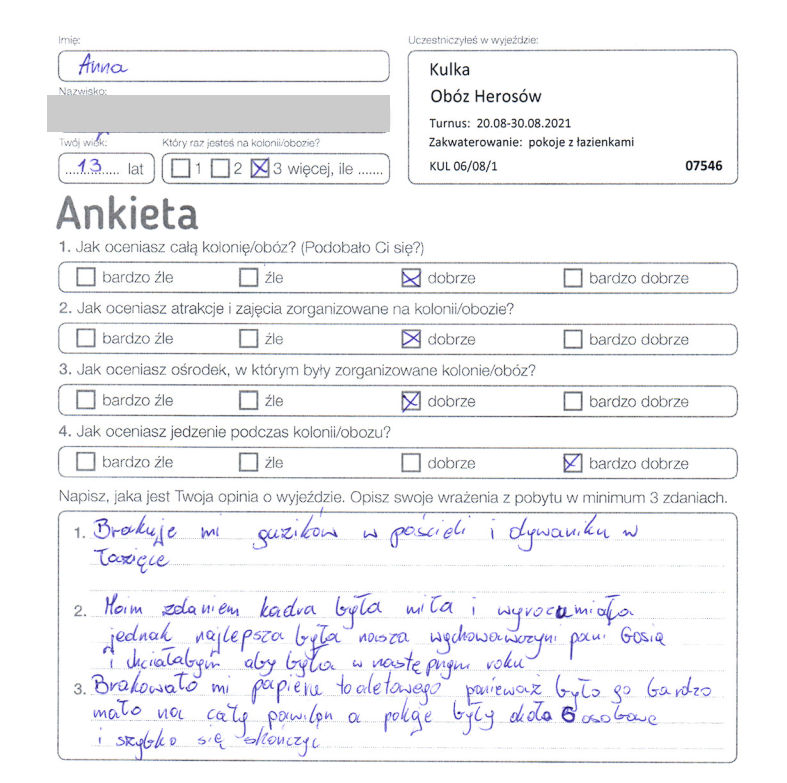 Imię:
Anna
Uczestniczyłeś w wyjeździe:
Kulka
Obóz Herosów
Turnus: 20.08-30.08.2021
Zakwaterowanie: pokoje z łazienkami
KUL 06/08/1 07546
Nazwisko:
Twój wiek:
13 lat
Który raz jesteś na kolonii/obozie?
1 2 3 więcej, ile .......
Ankieta
1. Jak oceniasz całą kolonię/obóz? (Podobało Ci się?)
bardzo źle źle dobrze bardzo dobrze
2. Jak oceniasz atrakcje i zajęcia zorganizowane na kolonii/obozie?
bardzo źle źle dobrze bardzo dobrze
3. Jak oceniasz ośrodek, w którym były zorganizowane kolonie/obóz?
bardzo źle źle dobrze bardzo dobrze
4. Jak oceniasz jedzenie podczas kolonii/obozu?
bardzo źle źle dobrze bardzo dobrze
Napisz, jaka jest Twoja opinia o wyjeździe. Opisz swoje wrażenia z pobytu w minimum 3 zdaniach.
1. Brakuje mi guzików w pościeli i dywaniku w
łazięce
2. Moim zdaniem kadra była miła i wyrozumiała
jednak najlepsza była nasza wychowawczyni pani Gosia
i chciałabym aby była w następnym roku
3. Brakowało mi papieru toaletowego ponieważ było go bardzo
mało na cały pawilon a pokoje były około 6 osobowe
i szybko się skończył